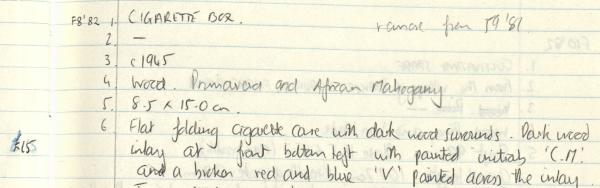 F8'82 1. CIGARETTE BOX. remove from J9'81
2. —
3. c1945
4. Wood. Primavera and African Mahogany
5. 8.5 x 15.0 cm.
6. Flat folding cigarette case with dark wood surrounds. Dark wood
£15 inlay at front bottom left with painted initials 'C.M.'
and a broken red and blue 'V' painted across the inlay.